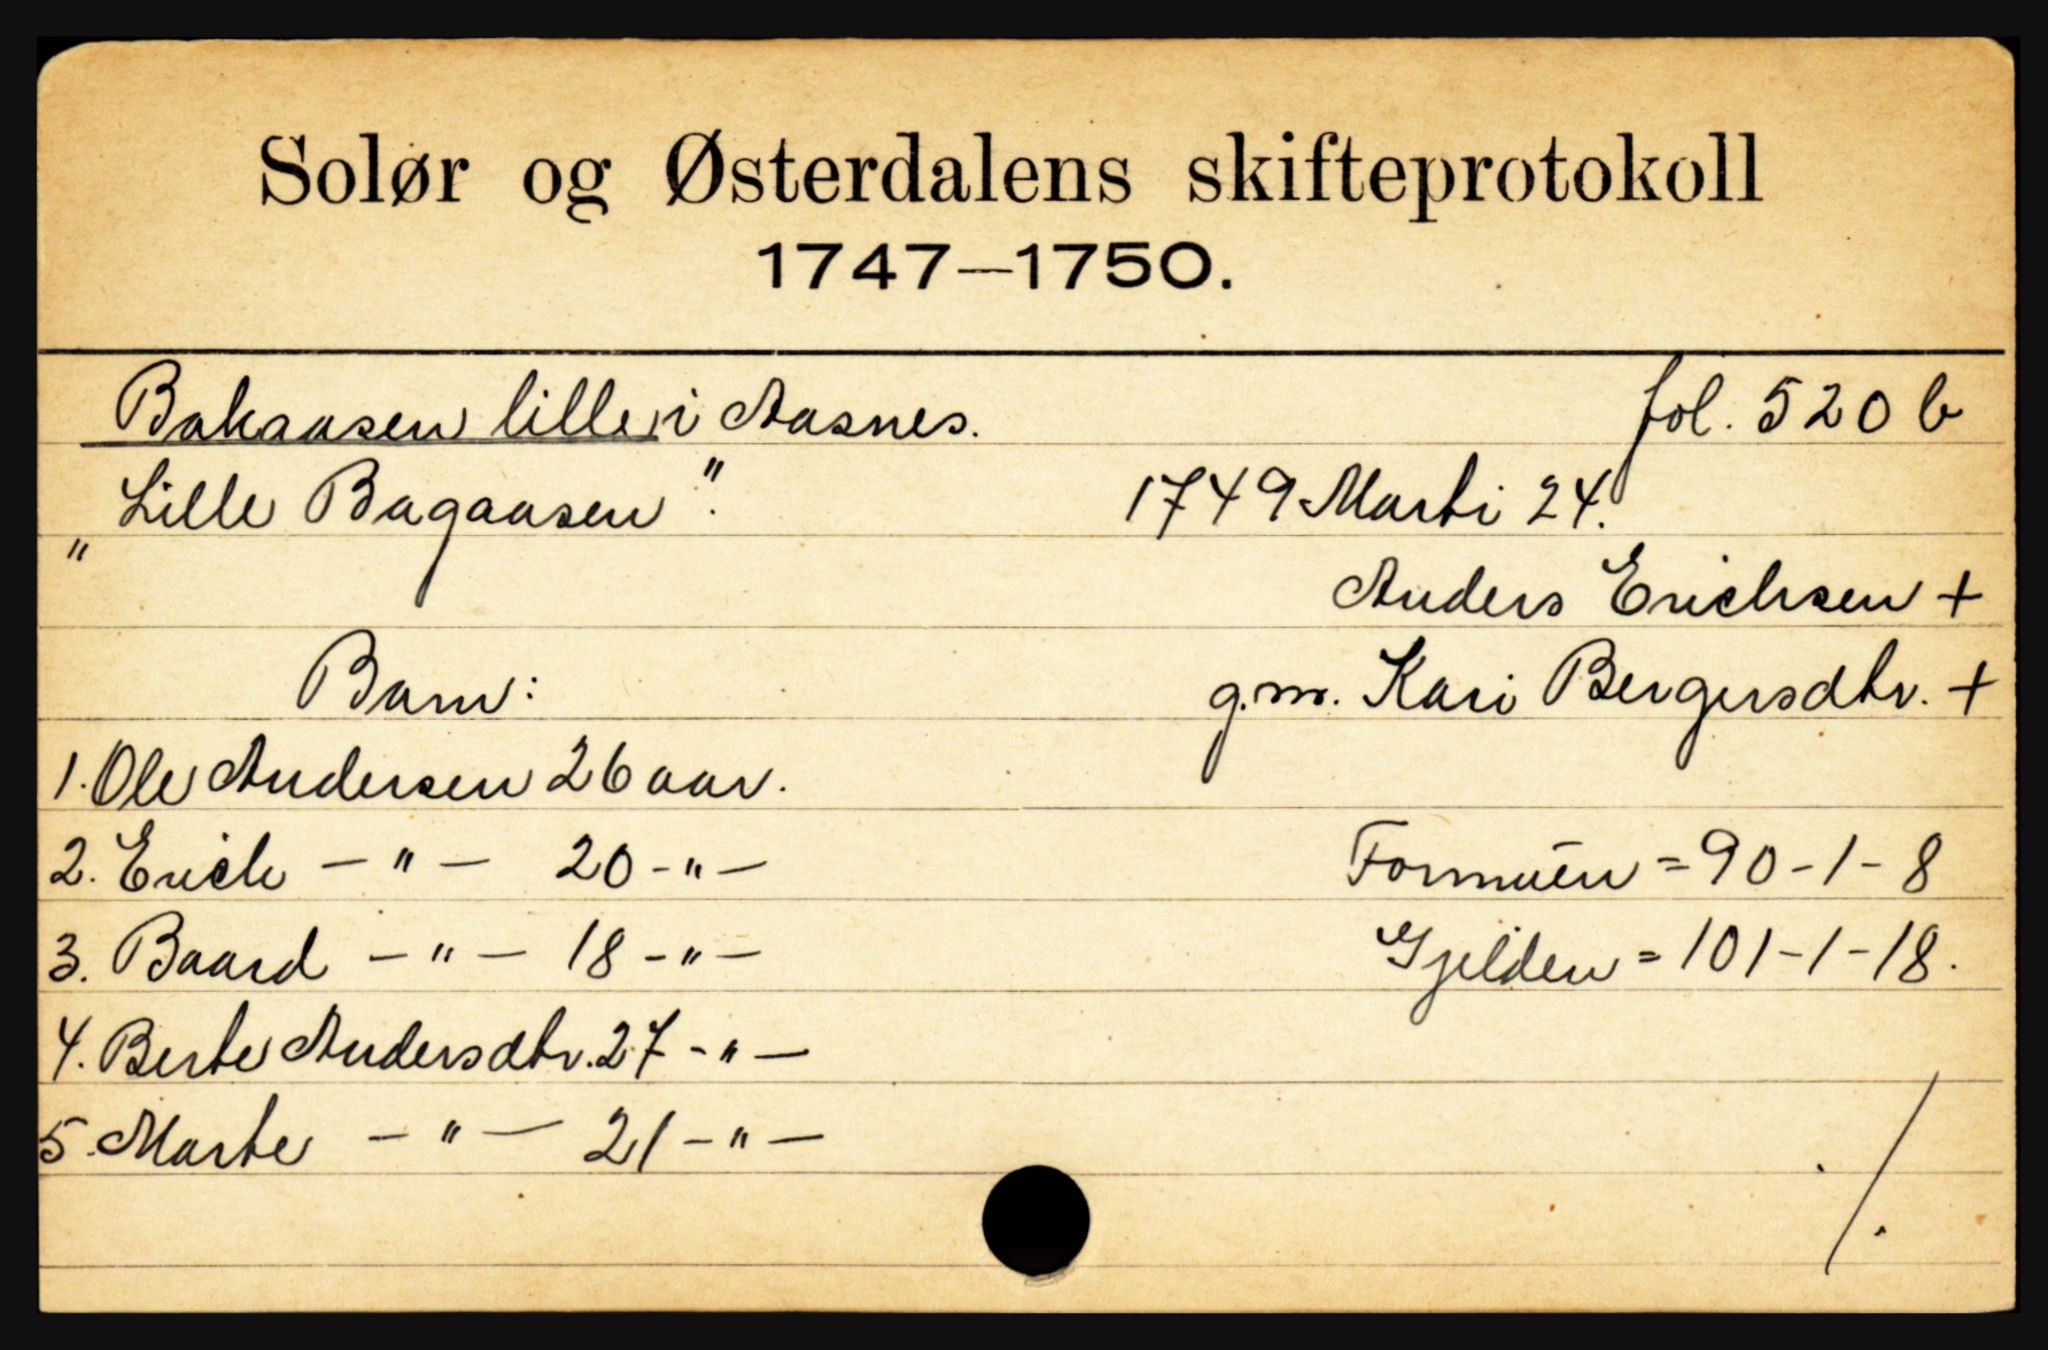 Solør og Østerdalens skifteprotokoll
1747—1750.
Bakaasen lille i Aasnes. fol. 520 b
„Lille Bagaasen". 1749 Marti 24.
Anders Erichsen +
Barn: g.m. Kari Bergersdtr. +
1. Ole Andersen 26 aar.
2. Erich — " — 20 - " — Formuen = 90 - 1 - 8
3. Baard — " — 18 - " — Gjelden = 101 - 1 - 18.
4. Berte Andersdtr. 27 - " —
5. Marte — " — 21 - " —
./.